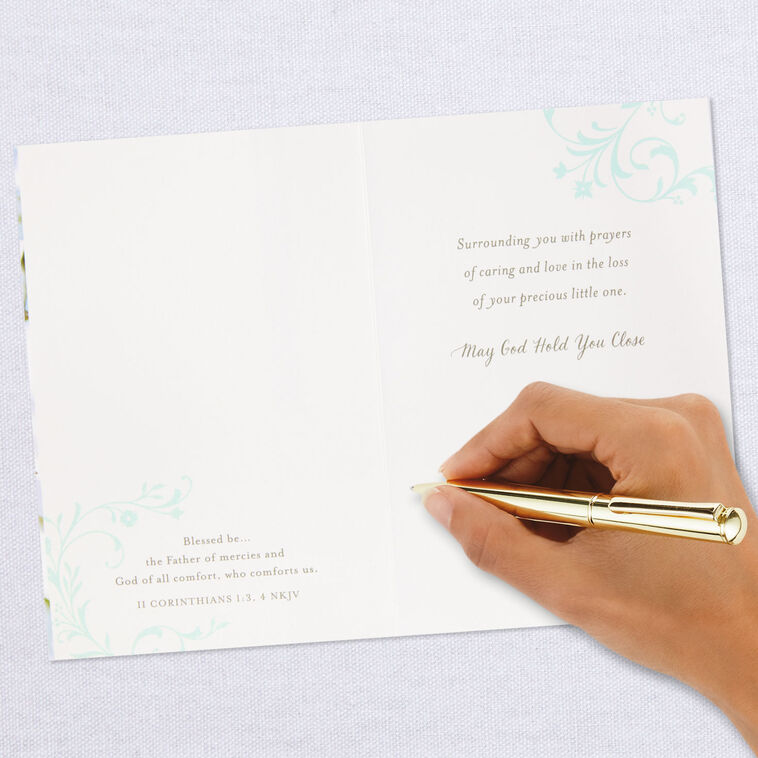 Blessed be...
the Father of mercies and
God of all comfort, who comforts us.
II CORINTHIANS 1:3, 4 NKJV
Surrounding you with prayers
of caring and love in the loss
of your precious little one.
May God Hold You Close